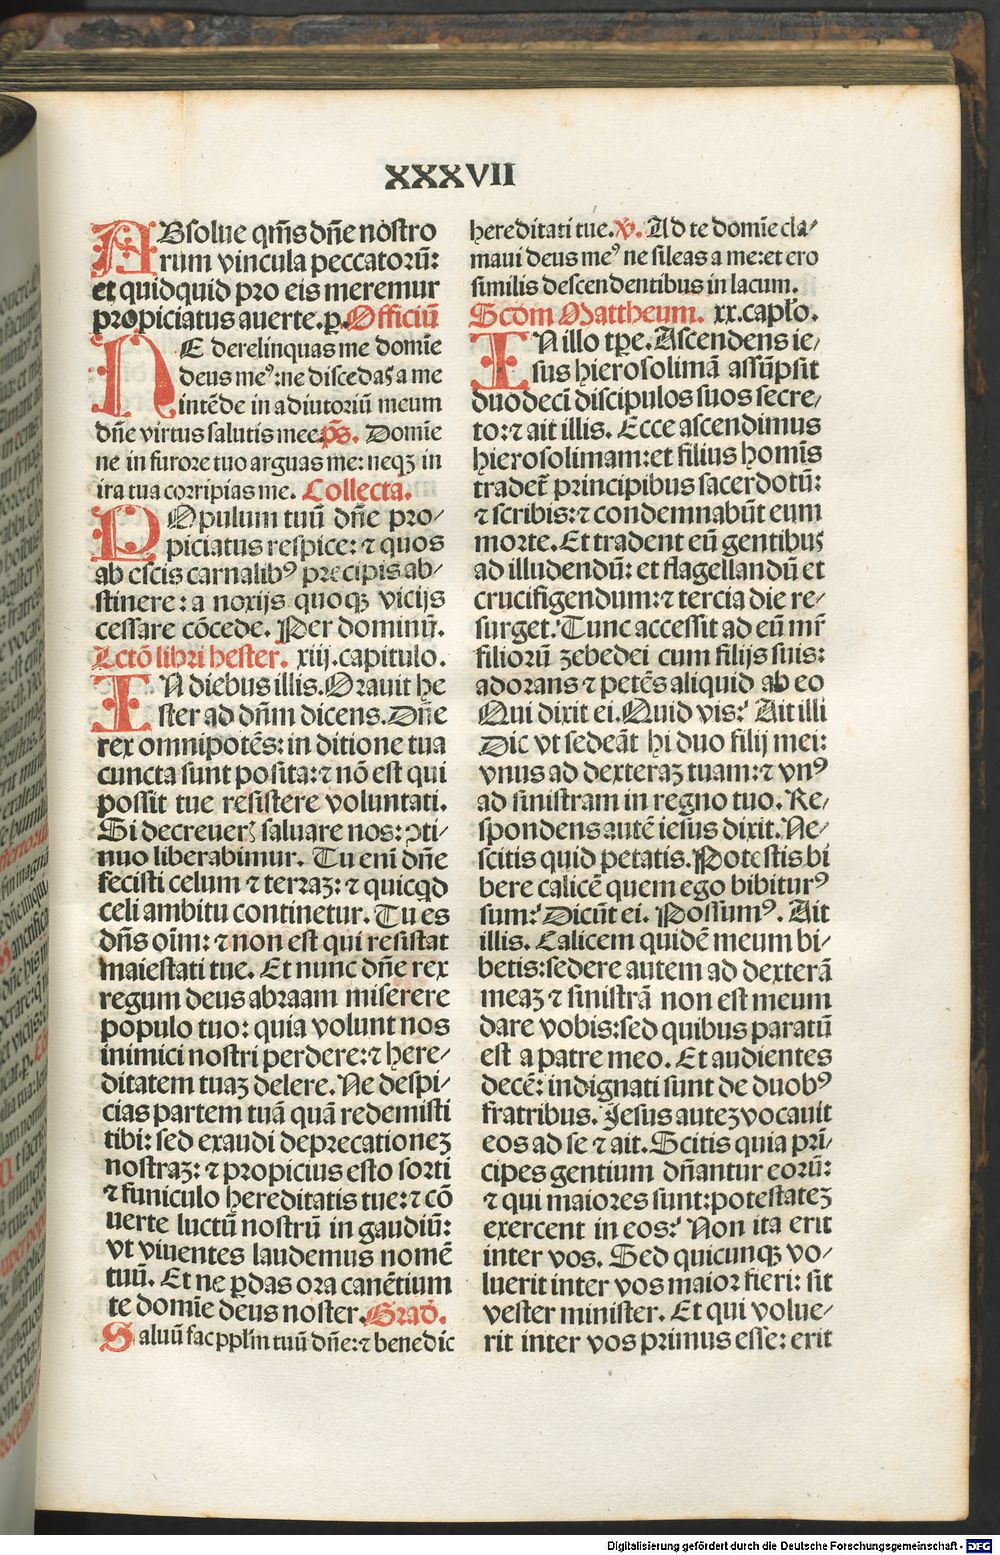 XXXVII
ABsolue qm̃s dñe nostro
rum vincula peccatorū:
et quidquid pro eis meremur
propiciatus auerte.ꝑ. Officiū
NE derelinquas me domīe
deus meꝰ: ne discedas a me
intēde in adiutoriū meum
dñe virtus salutis mee. p̄s. Domīe
ne in furore tuo arguas me: neqꝫ in
ira tua corripias me. Collecta.
POpulum tuū dñe pro⸗
piciatus respice: ⁊ quos
ab escis carnalibꝰ precipis ab⸗
stinere: a noxijs quoqꝫ vicijs
cessare cōcede. Per dominū.
Lctō libri hester. xiij.capitulo.
IN diebus illis. Orauit he
ster ad dn̄m dicens. Dñe
rex omnipotēs: in ditione tua
cuncta sunt posita: ⁊ nō est qui
possit tue resistere voluntati.
Si decreuer̄ saluare nos: ↄti⸗
nuo liberabimur. Tu eni dñe
fecisti celum ⁊ terraꝫ: ⁊ quicqd
celi ambitu continetur. Tu es
dn̄s oīm: ⁊ non est qui resistat
maiestati tue. Et nunc dñe rex
regum deus abraam miserere
populo tuo: quia volunt nos
inimici nostri perdere: ⁊ here⸗
ditatem tuaꝫ delere. Ne despi⸗
cias partem tuā quā redemisti
tibi: sed exaudi deprecationeꝫ
nostraꝫ: ⁊ propicius esto sorti
⁊ funiculo hereditatis tue: ⁊ cō
uerte luctū nostrū in gaudiū:
vt viuentes laudemus nomē
tuū. Et ne ꝑdas ora canētium
te domīe deus noster. Grad̄.
Saluū fac pplm̄ tuū dñe: ⁊ benedic
hereditati tue. v̄. Ad te domīe cla⸗
maui deus meꝰ ne sileas a me: et ero
similis descendentibus in lacum.
Scdm̄ Mattheum. xx.capło.
IN illo tꝑe. Ascendens ie⸗
sus hierosolimā assūpsit
duodeci discipulos suos secre⸗
to: ⁊ ait illis. Ecce ascendimus
hierosolimam: et filius homīs
tradet̄ principibus sacerdotū:
⁊ scribis: ⁊ condemnabūt eum
morte. Et tradent eū gentibus
ad illudendū: et flagellandū et
crucifigendum: ⁊ tercia die re⸗
surget. Tunc accessit ad eū mr̄
filiorū zebedei cum filijs suis:
adorans ⁊ petēs aliquid ab eo
Qui dixit ei. Quid vis? Ait illi
Dic vt sedeāt hi duo filij mei:
vnus ad dexteraꝫ tuam: ⁊ vnꝰ
ad sinistram in regno tuo. Re⸗
spondens autē iesus dixit. Ne⸗
scitis quid petatis. Potestis bi
bere calicē quem ego bibiturꝰ
sum? Dicūt ei. Possumꝰ. Ait
illis. Calicem quidē meum bi⸗
betis: sedere autem ad dexterā
meaꝫ ⁊ sinistrā non est meum
dare vobis: sed quibus paratū
est a patre meo. Et audientes
decē: indignati sunt de duobꝰ
fratribus. Jesus auteꝫ vocauit
eos ad se ⁊ ait. Scitis quia pri⸗
cipes gentium dn̄antur eorū:
⁊ qui maiores sunt: potestateꝫ
exercent in eos? Non ita erit
inter vos. Sed quicunqꝫ vo⸗
luerit inter vos maior fieri: sit
vester minister. Et qui volue⸗
rit inter vos primus esse: erit
Digitalisierung gefördert durch die Deutsche Forschungsgemeinschaft - DFG